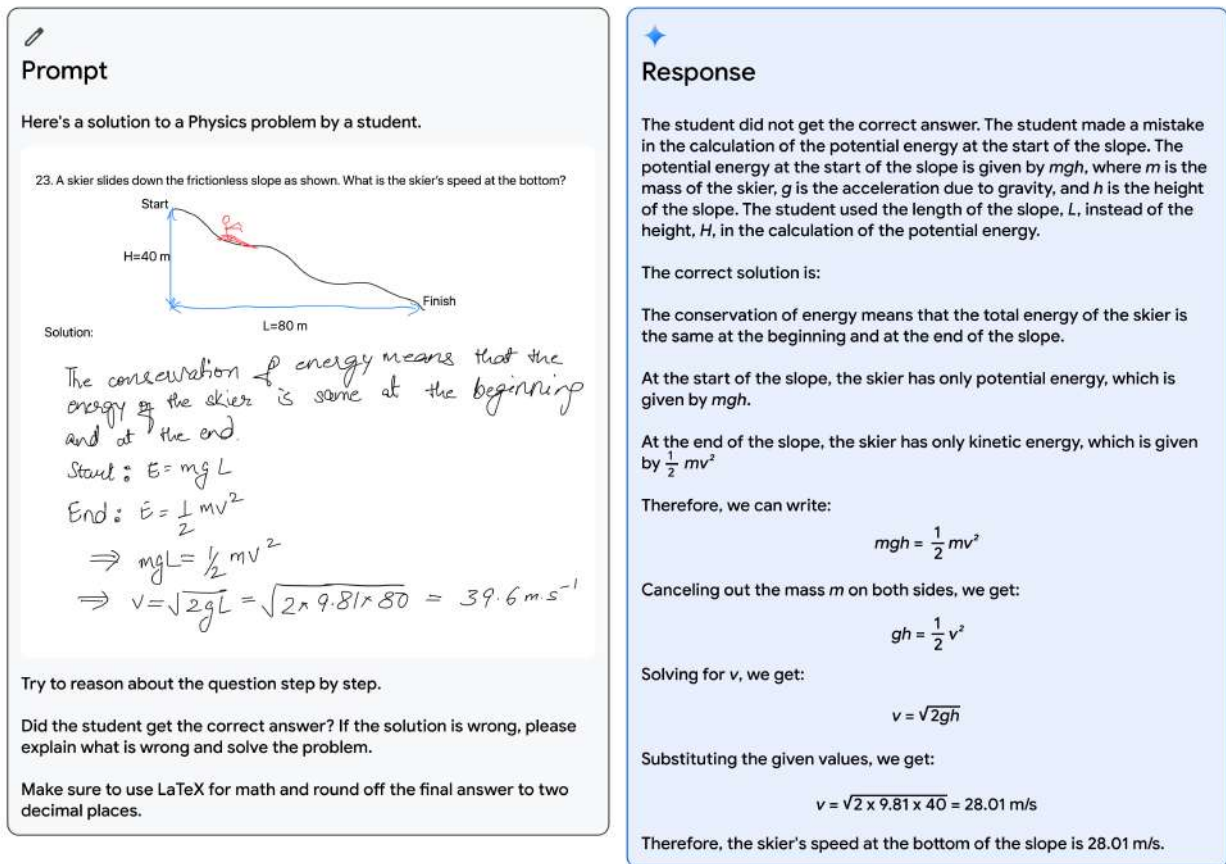 Prompt
Here's a solution to a Physics problem by a student.
23. A skier slides down the frictionless slope as shown. What is the skier's speed at the bottom?
Start
H=40 m
Finish
L=80 m
Solution:
The conservation of energy means that the
energy of the skier is same at the beginning
and at the end.
Start : E = mgL
End : E = 1/2 mv²
⇒ mgL = 1/2 mv²
⇒ v = √2gL = √2×9.81×80 = 39.6 m.s⁻¹
Try to reason about the question step by step.
Did the student get the correct answer? If the solution is wrong, please
explain what is wrong and solve the problem.
Make sure to use LaTeX for math and round off the final answer to two
decimal places.
Response
The student did not get the correct answer. The student made a mistake
in the calculation of the potential energy at the start of the slope. The
potential energy at the start of the slope is given by mgh, where m is the
mass of the skier, g is the acceleration due to gravity, and h is the height
of the slope. The student used the length of the slope, L, instead of the
height, H, in the calculation of the potential energy.
The correct solution is:
The conservation of energy means that the total energy of the skier is
the same at the beginning and at the end of the slope.
At the start of the slope, the skier has only potential energy, which is
given by mgh.
At the end of the slope, the skier has only kinetic energy, which is given
by 1/2 mv²
Therefore, we can write:
mgh = 1/2 mv²
Canceling out the mass m on both sides, we get:
gh = 1/2 v²
Solving for v, we get:
v = √2gh
Substituting the given values, we get:
v = √2 x 9.81 x 40 = 28.01 m/s
Therefore, the skier's speed at the bottom of the slope is 28.01 m/s.